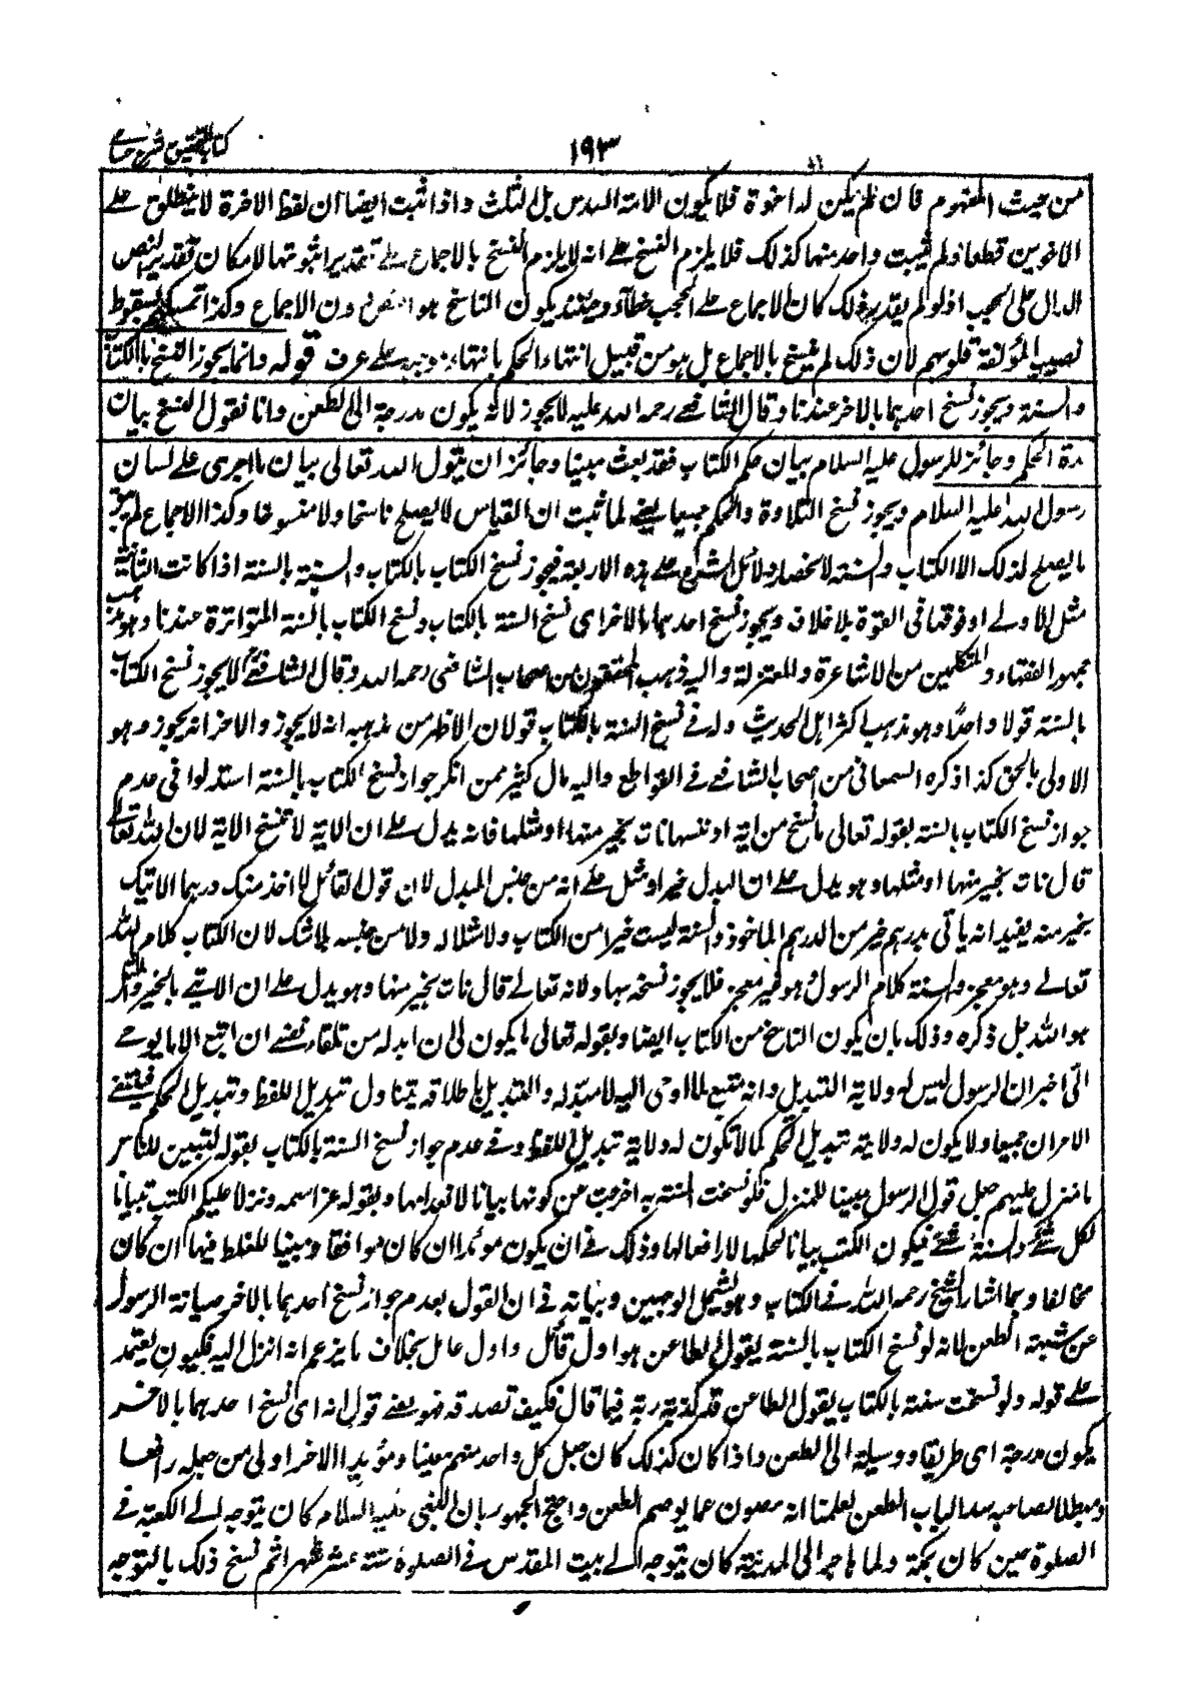 كتاب التحقيق شرح حسامي
١٩٣
من حيث المفهوم فان لم يكن له اخوة فلا يكون لامه السدس بل الثلث واذا ثبت ايضا ان لفظ الاخوة لا ينطلق على
الاخوين قطعا ولم يثبت واحد منهما كذلك فلا يلزم النسخ على انه لا يلزم النسخ بالاجماع على تقدير ثبوتها لامكان تقدير النص
الدال على الحجب اذ لو لم يقدر ذلك كان الاجماع على الحجب خطأ وحينئذ يكون الناسخ هو النص دون الاجماع وكذا تمسكهم بسقوط
نصيب المؤلفة قلوبهم لان ذلك لم ينسخ بالاجماع بل هو من قبيل انتهاء الحكم بانتهاء موجبه على عرف قوله وانما يجوز النسخ بالكتاب
والسنة ويجوز نسخ احدهما بالاخر عندنا وقال الشافعي رحمه الله عليه لا يجوز لانه يكون مدرجة الى الطعن وانا نقول النسخ بيان
مدة الحكم وجائز للرسول عليه السلام بيان حكم الكتاب فقد بعث مبينا وجائز ان يتول الله تعالى بيان ما اجرى على لسان
رسول الله عليه السلام ويجوز نسخ التلاوة والحكم جميعا يعني لما ثبت ان القياس لا يصلح ناسخا ولا منسوخا وكذا الاجماع لم يبق
ما يصلح لذلك الا الكتاب والسنة لانحصار دلائل الشرع على هذه الاربعة فيجوز نسخ الكتاب بالكتاب والسنة بالسنة اذا كانت الثانية
مثل الاولى او فوقها في القوة بلا خلاف ويجوز نسخ احدهما بالاخر اى نسخ السنة بالكتاب ونسخ الكتاب بالسنة المتواترة عندنا وهو مذهب
جمهور الفقهاء والمتكلمين من الاشاعرة والمعتزلة واليه ذهب المحققون من اصحاب الشافعى رحمه الله وقال الشافعي لا يجوز نسخ الكتاب
بالسنة قولا واحدا وهو مذهب اكثر اهل الحديث وله في نسخ السنة بالكتاب قولان الاظهر من مذهبه انه لا يجوز والاخر انه يجوز وهو
الاولى بالحق كذا ذكره السمعانى من اصحاب الشافعي في القواطع واليه مال كثير ممن انكر جواز نسخ الكتاب بالسنة استدلوا في عدم
جواز نسخ الكتاب بالسنة بقوله تعالى ما ننسخ من اية او ننسها نات بخير منها او مثلها فانه يدل على ان الاية لا تنسخ الا باية لان الله تعالى
قال نات بخير منها او مثلها وهو يدل على ان البدل خير او مثل على انه من جنس المبدل لان قول القائل لا اخذ منك درهما الا اتيك
بخير منه يفيد انه ياتى بدرهم خير من الدرهم الماخوذ والسنة ليست خيرا من الكتاب ولا مثلا له ولا من جنسه بلا شك لان الكتاب كلام الله
تعالى وهو معجز والسنة كلام الرسول وهو غير معجز فلا يجوز نسخه بها ولانه تعالى قال نات بخير منها وهو يدل على ان الاتي بالخير والمثل
هو الله جل ذكره وذلك بان يكون الناسخ من الكتاب ايضا وبقوله تعالى ما يكون لى ان ابدله من تلقاء نفسي ان اتبع الا ما يوحى
الى اخبر ان الرسول ليس له ولاية التبديل وانه متبع لما اوحى اليه لا مبدل له والتبديل باطلاقه يتناول تبديل اللفظ وتبديل الحكم فينتفي
الامران جميعا ولا يكون له ولاية تبديل الحكم كما لا تكون له ولاية تبديل اللفظ وفي عدم جواز نسخ السنة بالكتاب بقوله لتبين للناس
ما نزل عليهم جعل قول الرسول مبينا للمنزل فلو نسخت السنة به اخرجت عن كونها بيانا لانعدامها وبقوله عز اسمه ونزلنا عليكم الكتب تبيانا
لكل شئ والسنة شئ فيكون الكتب بيانا لحكمها لا رافعا لها وذلك في ان يكون مؤيدا ان كان موافقا ومبينا للغلط فيها ان كان
مخالفا وبما اشار الشيخ رحمه الله في الكتاب وهو يشمل الوجهين وبيانه في ان القول بعدم جواز نسخ احدهما بالاخر صيانة الرسول
عن شبهة الطعن لانه لو نسخ الكتاب بالسنة يقول الطاعن هو اول قائل واول عامل بخلاف ما يزعم انه انزل اليه فكيف يعتمد
على قوله ولو نسخت سنته بالكتاب يقول الطاعن قد كذبه ربه فيما قال فكيف نصدقه فهو يعني قوله انه اى نسخ احدهما بالاخر
يكون مدرجة اى طريقا ووسيلة الى الطعن واذا كان كذلك كان جعل كل واحد منهم معينا ومؤيدا الاخر اولى من جعله رافعا
ومبطلا لصاحبه سدا لباب الطعن لعلمنا انه مصون عما يوصم الطعن واحتج الجمهور بان النبى عليه السلام كان يتوجه الى الكعبة في
الصلوة حين كان بمكة ولما هاجر الى المدينة كان يتوجه الى بيت المقدس في الصلوة ستة عشر شهرا ثم نسخ ذلك بالتوجه